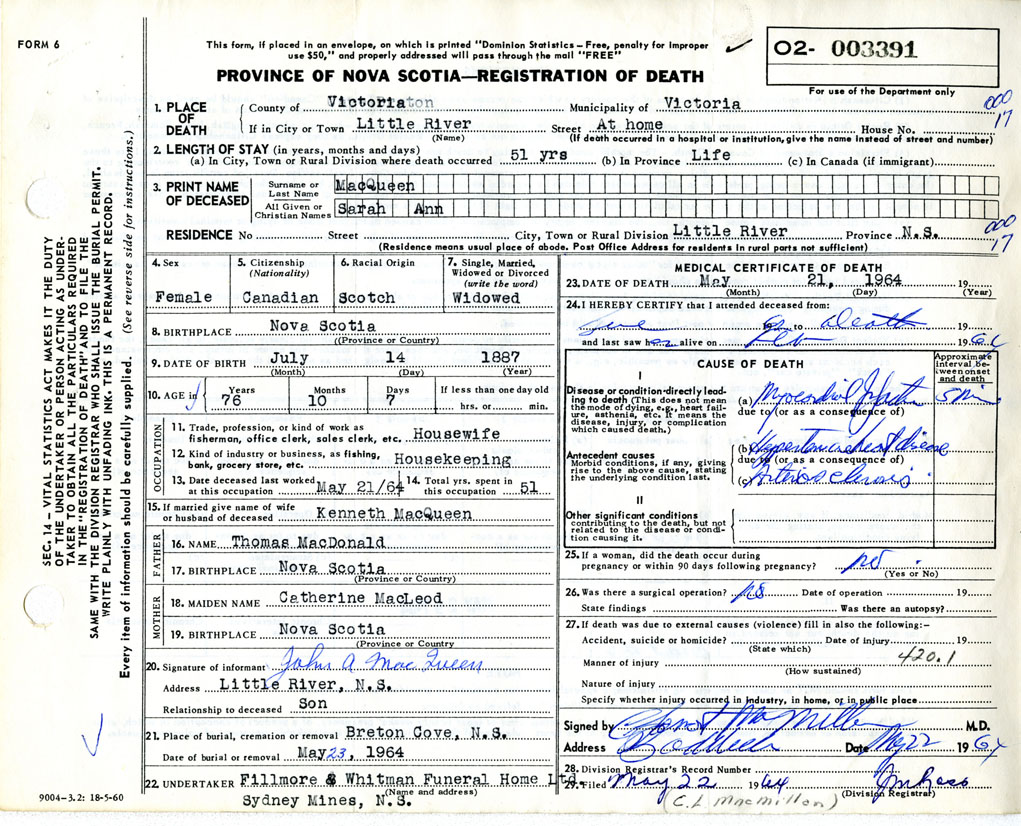 FORM 6
This form, if placed in an envelope, on which is printed "Dominion Statistics – Free, penalty for improper
use $50," and properly addressed will pass through the mail "FREE"
✓
O2- 003391
For use of the Department only
PROVINCE OF NOVA SCOTIA—REGISTRATION OF DEATH
000
17
1. PLACE OF DEATH
County of Victoria Municipality of Victoria
If in City or Town Little River Street At home House No.
(Name) (If death occurred in a hospital or institution, give the name instead of street and number)
2. LENGTH OF STAY (in years, months and days)
(a) In City, Town or Rural Division where death occurred 51 yrs (b) In Province Life (c) In Canada (if immigrant)
3. PRINT NAME OF DECEASED
Surname or Last Name MacQueen
All Given or Christian Names Sarah Ann
RESIDENCE No Street City, Town or Rural Division Little River Province N.S.
(Residence means usual place of abode. Post Office Address for residents in rural parts not sufficient)
000
17
4. Sex Female
5. Citizenship (Nationality) Canadian
6. Racial Origin Scotch
7. Single, Married, Widowed or Divorced (write the word) Widowed
8. BIRTHPLACE Nova Scotia
(Province or Country)
9. DATE OF BIRTH July 14 1887
(Month) (Day) (Year)
10. AGE in Years 76 Months 10 Days 7 If less than one day old hrs. or min.
OCCUPATION
11. Trade, profession, or kind of work as
fisherman, office clerk, sales clerk, etc. Housewife
12. Kind of industry or business, as fishing,
bank, grocery store, etc. Housekeeping
13. Date deceased last worked at this occupation May 21/64 14. Total yrs. spent in this occupation 51
15. If married give name of wife
or husband of deceased Kenneth MacQueen
FATHER
16. NAME Thomas MacDonald
17. BIRTHPLACE Nova Scotia
(Province or Country)
MOTHER
18. MAIDEN NAME Catherine MacLeod
19. BIRTHPLACE Nova Scotia
(Province or Country)
20. Signature of informant John A MacQueen
Address Little River, N.S.
Relationship to deceased Son
21. Place of burial, cremation or removal Breton Cove, N.S.
Date of burial or removal May 23, 1964
22. UNDERTAKER Fillmore & Whitman Funeral Home Ltd.
(Name and address)
Sydney Mines, N.S.
MEDICAL CERTIFICATE OF DEATH
23. DATE OF DEATH May 21, 1964 19
(Month) (Day) (Year)
24. I HEREBY CERTIFY that I attended deceased from:
to Death 19
and last saw her alive on Feb 1964
CAUSE OF DEATH
Approximate interval between onset and death
I
Disease or condition directly leading to death (This does not mean the mode of dying, e.g., heart failure, asthenia, etc. It means the disease, injury, or complication which caused death.)
(a) Myocardial 5 min
due to (or as a consequence of)
Antecedent causes
Morbid conditions, if any, giving rise to the above cause, stating the underlying condition last.
(b) Hypertensive heart disease
due to (or as a consequence of)
(c) Arteriosclerosis
II
Other significant conditions
contributing to the death, but not related to the disease or condition causing it.
25. If a woman, did the death occur during
pregnancy or within 90 days following pregnancy? no
(Yes or No)
26. Was there a surgical operation? no Date of operation 19
State findings Was there an autopsy?
27. If death was due to external causes (violence) fill in also the following:–
Accident, suicide or homicide? Date of injury 19
(State which)
Manner of injury 420.1
(How sustained)
Nature of injury
Specify whether injury occurred in industry, in home, or in public place
Signed by MacMillan M.D.
Address Baddeck Date May 22 1964
28. Division Registrar's Record Number
29. Filed May 22 1964
(Division Registrar)
(C. L MacMillan)
SEC. 14 – VITAL STATISTICS ACT MAKES IT THE DUTY
OF THE UNDERTAKER OR PERSON ACTING AS UNDER-
TAKER TO OBTAIN ALL THE PARTICULARS REQUIRED
IN THE "REGISTRATION OF DEATH" AND TO FILE THE
SAME WITH THE DIVISION REGISTRAR WHO SHALL ISSUE THE BURIAL PERMIT.
WRITE PLAINLY WITH UNFADING INK. THIS IS A PERMANENT RECORD.
Every item of information should be carefully supplied. (See reverse side for instructions.)
9004-3.2: 18-5-60